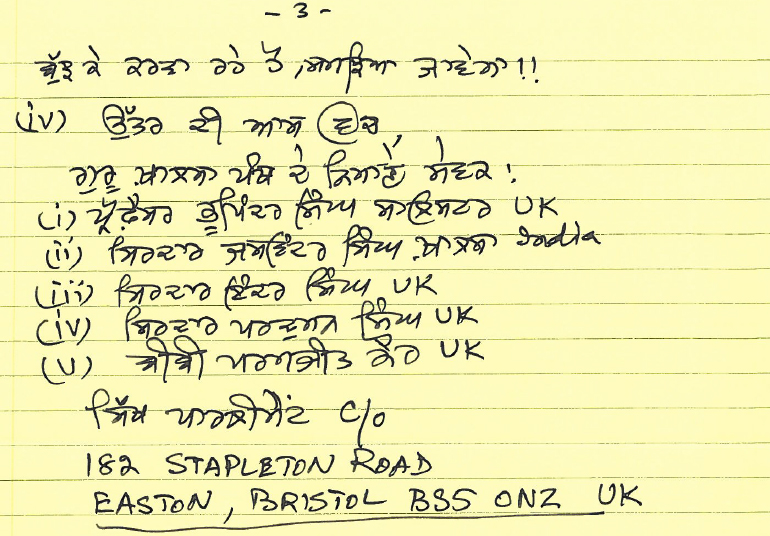 - 3 -
ਬੁੱਝ ਕੇ ਕਰਦਾ ਰਹੇ ਤੋਂ, ਸਮਝਿਆ ਜਾਵੇਗਾ!!
(iv) ਉੱਤਰ ਦੀ ਆਸ ਵਿਚ
ਗੁਰੂ ਖ਼ਾਲਸਾ ਪੰਥ ਦੇ ਨਿਮਾਣੇ ਸੇਵਕ:
(i) ਪ੍ਰੋਫ਼ੈਸਰ ਭੂਪਿੰਦਰ ਸਿੰਘ ਸਾਲਿਸਟਰ UK
(ii) ਸਿਰਦਾਰ ਜਸਵਿੰਦਰ ਸਿੰਘ ਖ਼ਾਲਸਾ India
(iii) ਸਿਰਦਾਰ ਇੰਦਰ ਸਿੰਘ UK
(iv) ਸਿਰਦਾਰ ਪਰਦੁਮਨ ਸਿੰਘ UK
(v) ਬੀਬੀ ਪਰਮਜੀਤ ਕੌਰ UK
ਸਿੱਖ ਪਾਰਲੀਮੈਂਟ C/o
182 STAPLETON ROAD
EASTON, BRISTOL BS5 0NZ UK